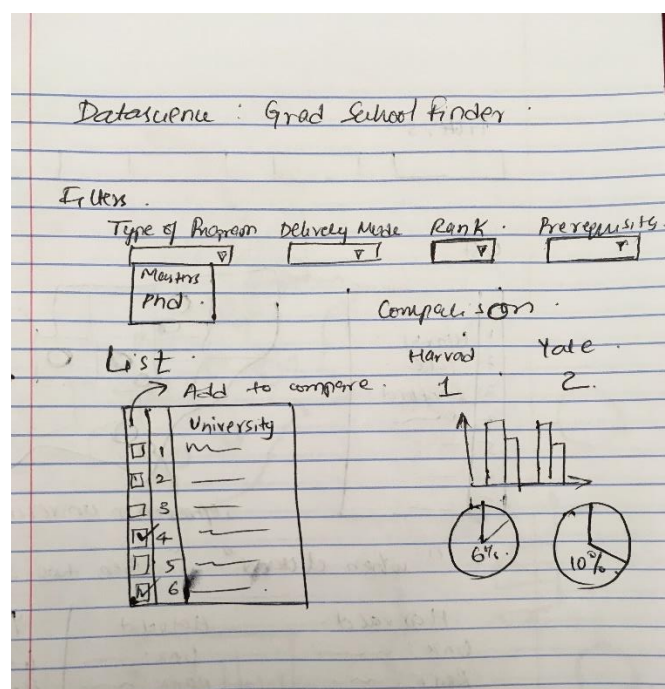 Datascience : Grad School Finder
Filters
Type of Program Delivery Mode Rank Prerequisits
Masters
Phd
Comparision
List
Harvad Yale
Add to compare 1 2
University
1
2
3
4
5
6
6%
10%